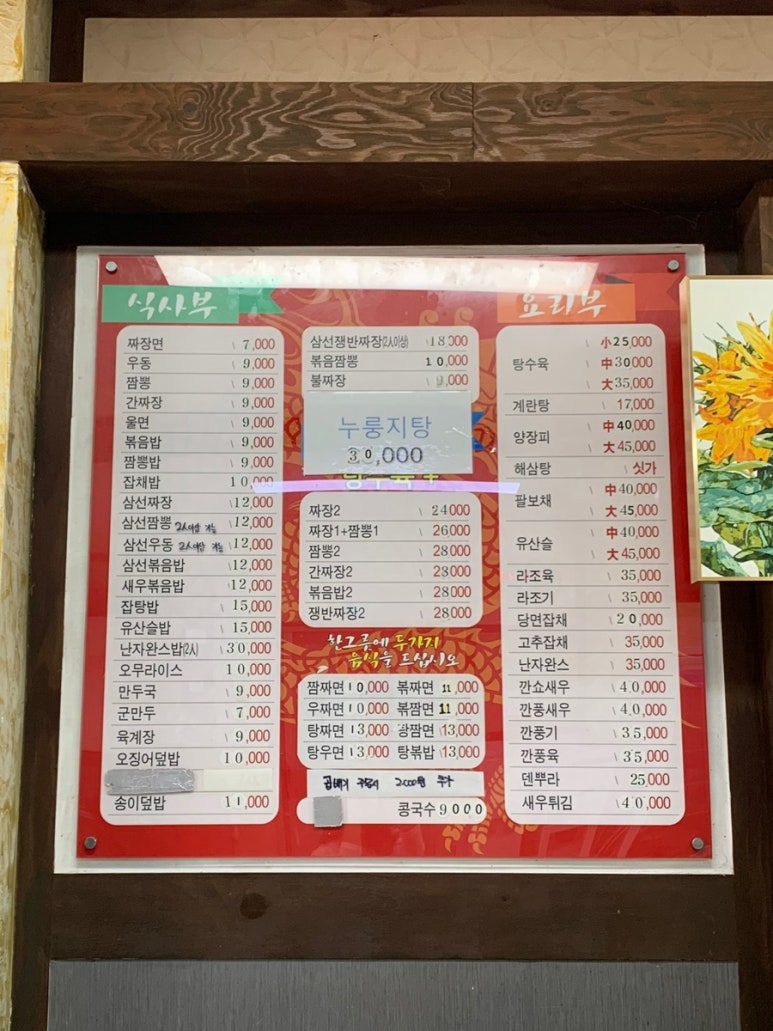 식사부
짜장면 \ 7,000
우동 \ 9,000
짬뽕 \ 9,000
간짜장 \ 9,000
울면 \ 9,000
볶음밥 \ 9,000
짬뽕밥 \ 9,000
잡채밥 10,000
삼선짜장 \12,000
삼선짬뽕 2人이상 가능 \12,000
삼선우동 2人이상 가능 \12,000
삼선볶음밥 \12,000
새우볶음밥 \12,000
잡탕밥 \ 15,000
유산슬밥 \ 15,000
난자완스밥(2시) \30,000
오무라이스 10,000
만두국 \ 9,000
군만두 \ 7,000
육계장 \ 9,000
오징어덮밥 \ 10,000
송이덮밥 \ 11,000
삼선쟁반짜장(2人이상) \18,000
볶음짬뽕 10,000
불짜장 \ 9,000
누룽지탕
30,000
짜장2 \ 24000
짜장1+짬뽕1 \ 26000
짬뽕2 \ 28000
간짜장2 \ 28000
볶음밥2 \ 28000
쟁반짜장2 \ 28000
한그릇에 두가지
음식을 드십시오
짬짜면 10,000 볶짜면 11,000
우짜면 \10,000 볶짬면 11,000
탕짜면 \13,000 탕짬면 \13,000
탕우면 \13,000 탕볶밥 \13,000
곱배기 2000원 추가
콩국수 9000
요리부
탕수육 小 25,000
中 30000
大 35,000
계란탕 \ 17,000
양장피 中 40,000
大 45,000
해삼탕 \ 싯가
팔보채 中 40,000
大 45,000
유산슬 中 40,000
大 45,000
라조육 \ 35,000
라조기 \ 35,000
당면잡채 \ 20,000
고추잡채 35,000
난자완스 \ 35,000
깐쇼새우 \ 40,000
깐풍새우 \ 40,000
깐풍기 \ 35,000
깐풍육 \ 35,000
덴뿌라 \ 25,000
새우튀김 \ 40,000